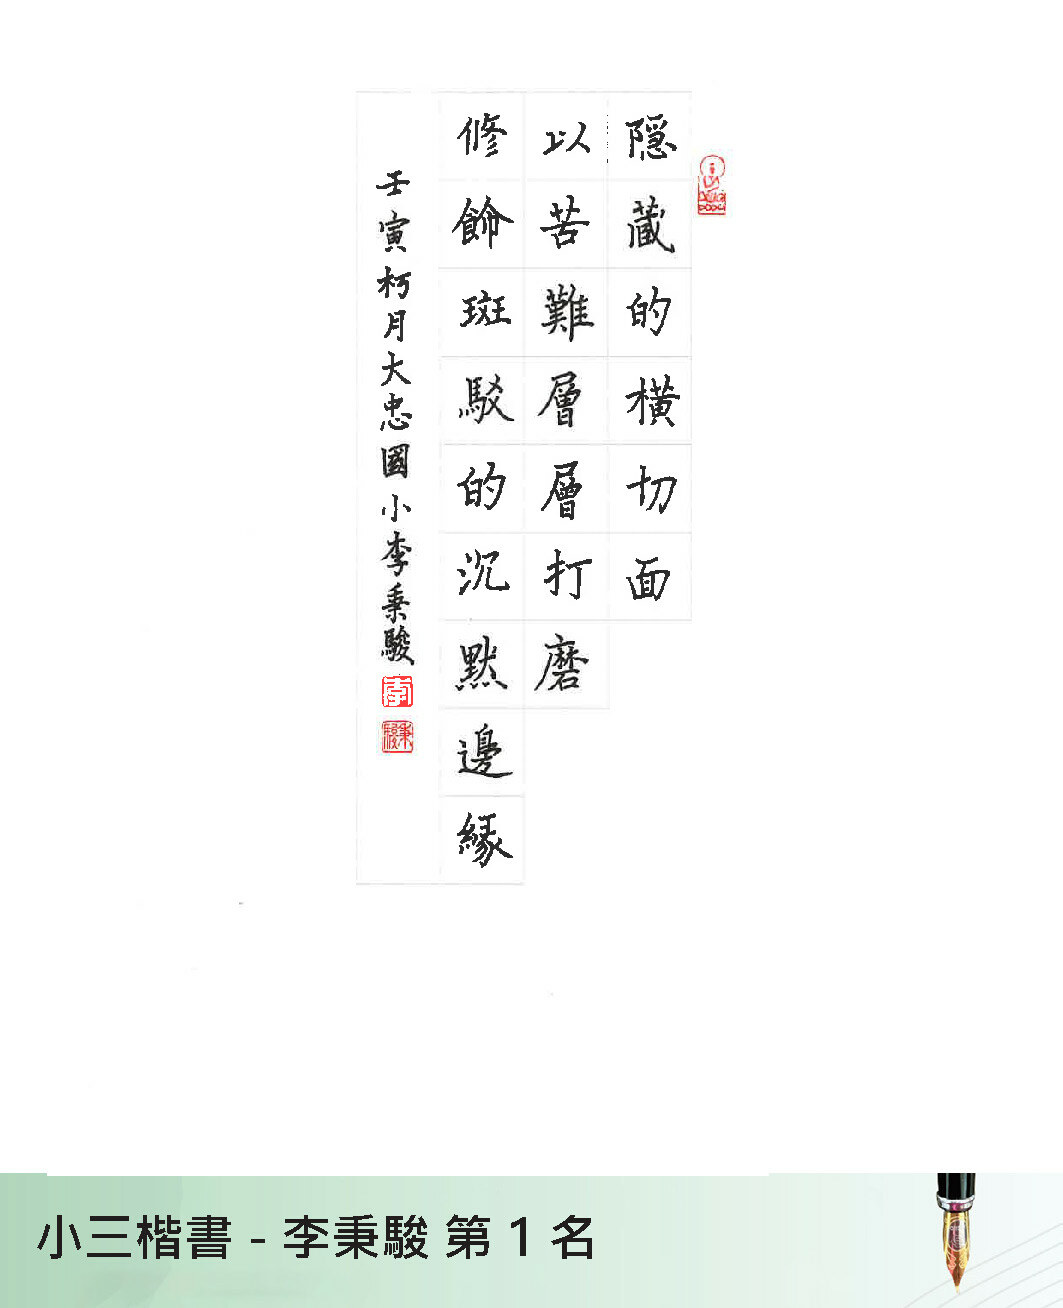 隱藏的橫切面
以苦難層層打磨
修飾斑駁的沉默邊緣
壬寅柯月大忠國小李秉駿
李
秉駿
小三楷書 - 李秉駿 第 1 名